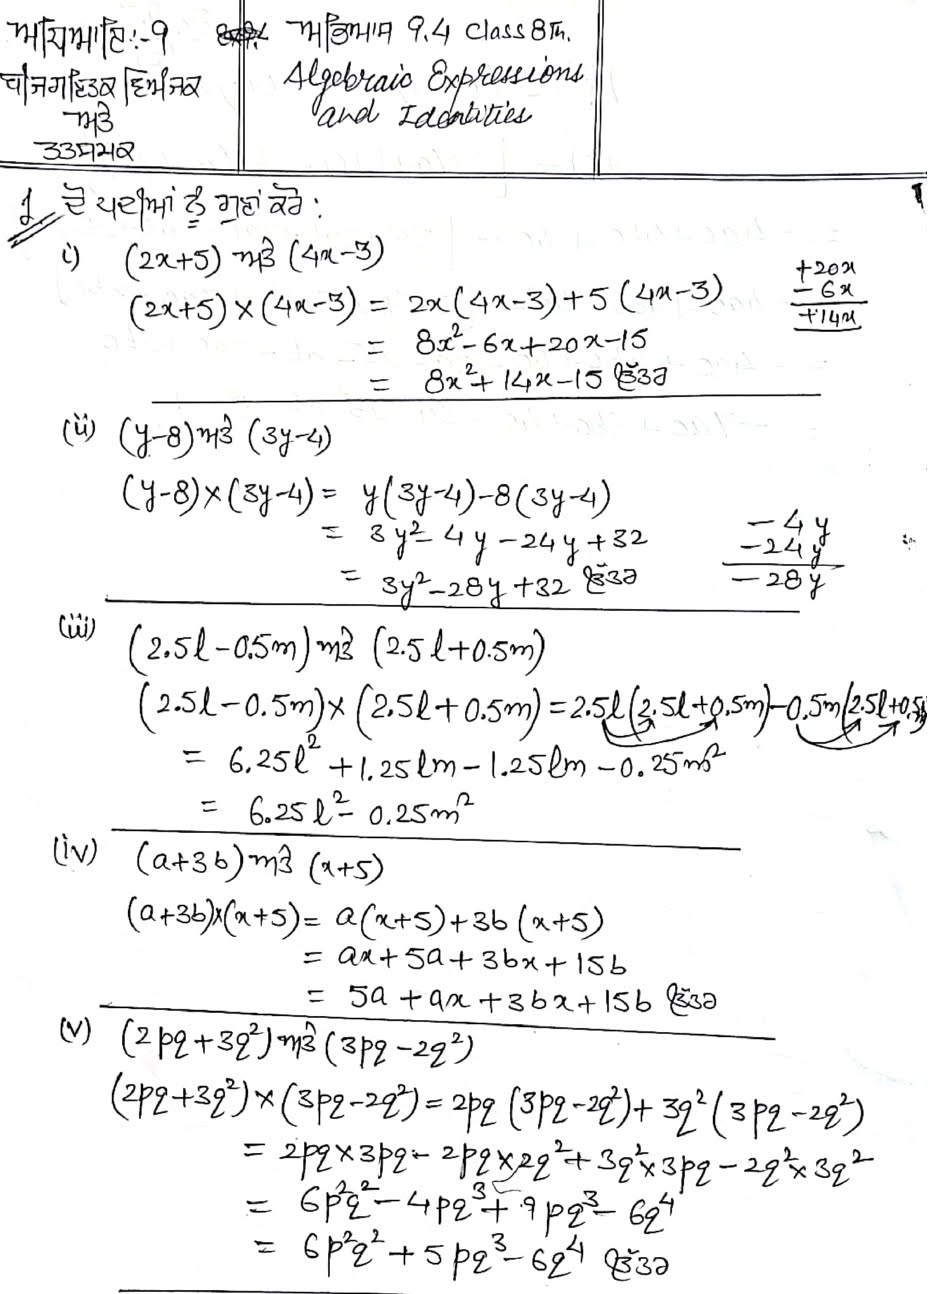 ਅਧਿਆਇ:-9
ਬੀਜਗਣਿਤਕ ਵਿਅੰਜਕ
ਅਤੇ
ਤਤਸਮਕ
ਅਭਿਆਸ 9.4 Class 8Th.
Algebraic Expressions
and Identities
1. ਦੋ ਪਦੀਆਂ ਨੂੰ ਗੁਣਾਂ ਕਰੋ:
i) (2x+5) ਅਤੇ (4x-3)
(2x+5) × (4x-3) = 2x(4x-3)+5(4x-3)
= 8x²-6x+20x-15
= 8x²+14x-15 ਉੱਤਰ
+20x
-6x
+14x
(ii) (y-8) ਅਤੇ (3y-4)
(y-8)×(3y-4) = y(3y-4)-8(3y-4)
= 3y²-4y-24y+32
= 3y²-28y+32 ਉੱਤਰ
-4y
-24y
-28y
(iii) (2.5l-0.5m) ਅਤੇ (2.5l+0.5m)
(2.5l-0.5m)×(2.5l+0.5m)=2.5l(2.5l+0.5m)-0.5m(2.5l+0.5
= 6.25l²+1.25lm-1.25lm-0.25m²
= 6.25l²-0.25m²
(iv) (a+3b) ਅਤੇ (x+5)
(a+3b)×(x+5) = a(x+5)+3b(x+5)
= ax+5a+3bx+15b
= 5a+ax+3bx+15b ਉੱਤਰ
(v) (2pq+3q²) ਅਤੇ (3pq-2q²)
(2pq+3q²)×(3pq-2q²) = 2pq(3pq-2q²)+3q²(3pq-2q²)
= 2pq×3pq-2pq×2q²+3q²×3pq-2q²×3q²
= 6p²q²-4pq³+9pq³-6q⁴
= 6p²q²+5pq³-6q⁴ ਉੱਤਰ